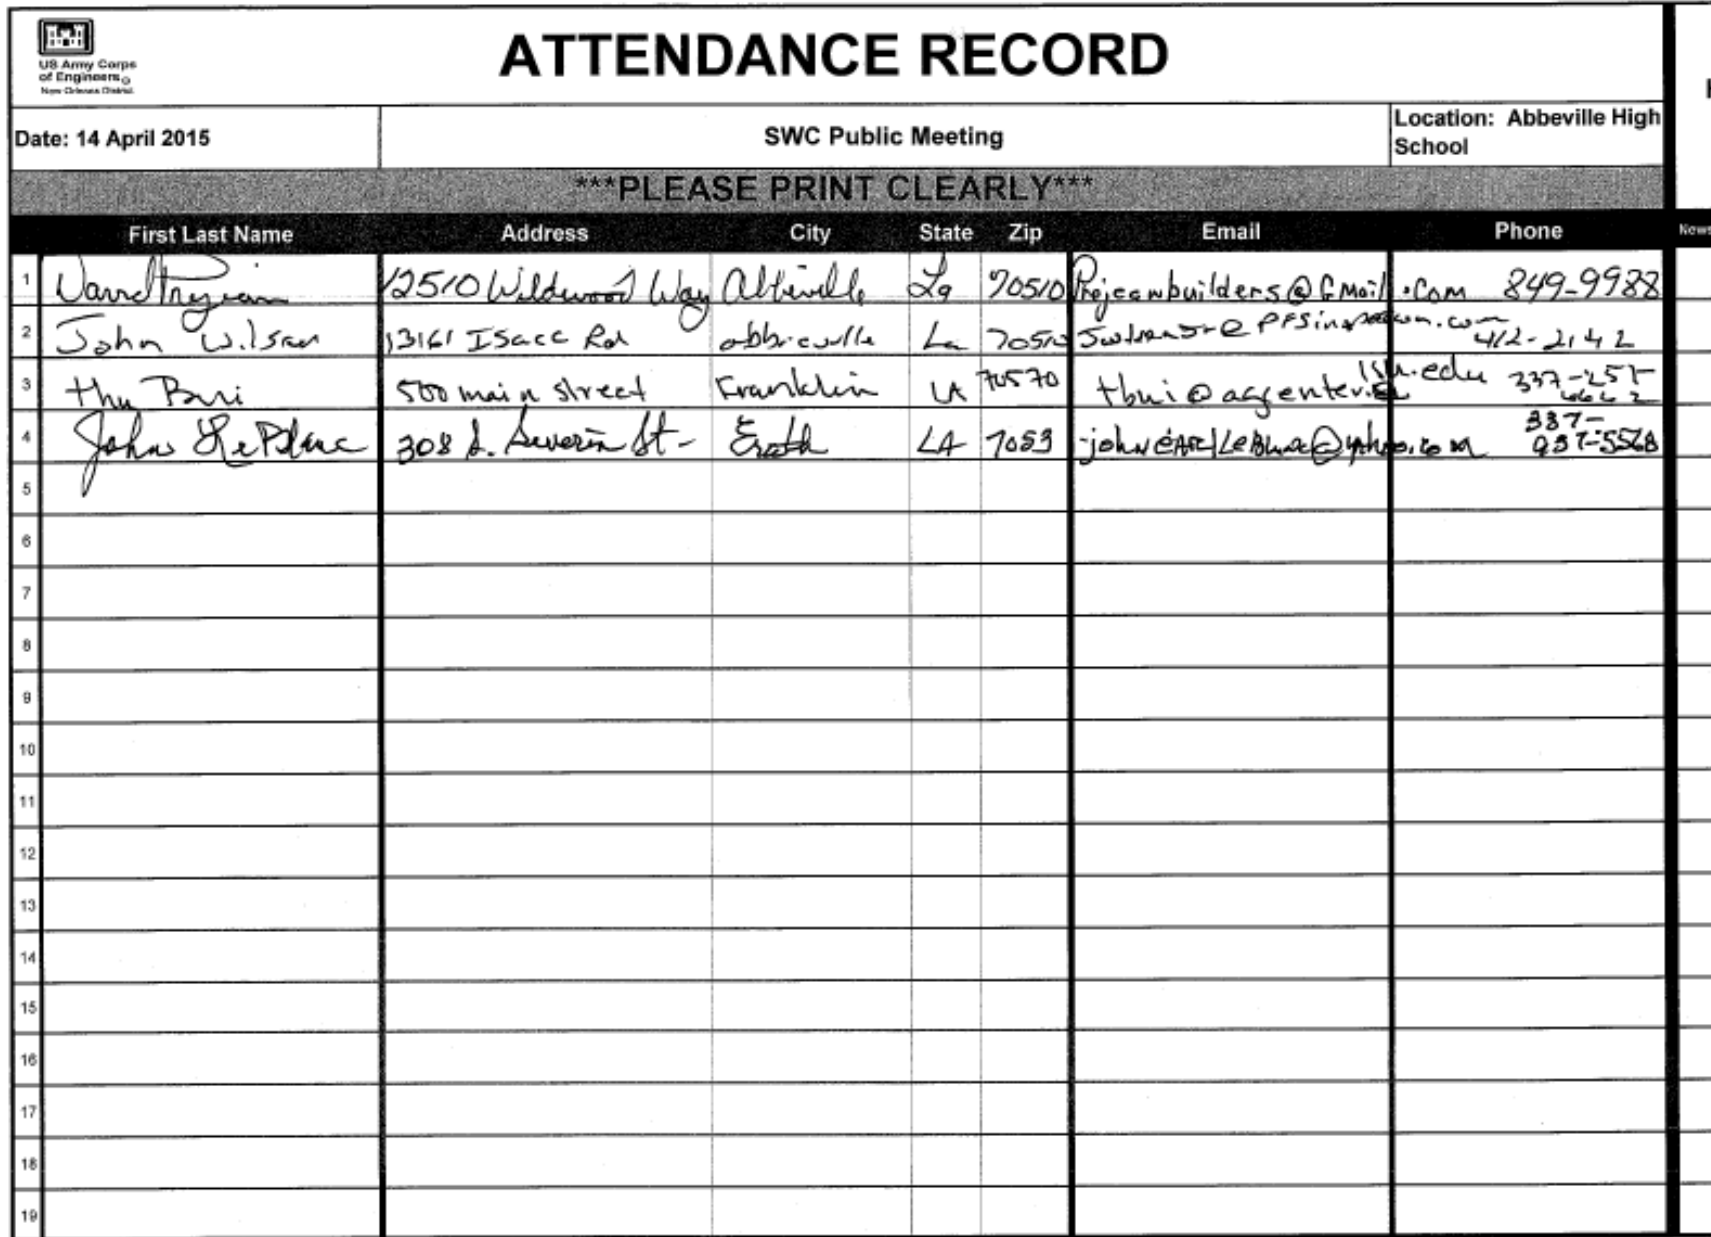 US Army Corps
of Engineers®
New Orleans District
ATTENDANCE RECORD
Date: 14 April 2015
SWC Public Meeting
Location: Abbeville High
School
***PLEASE PRINT CLEARLY***
First Last Name Address City State Zip Email Phone News
1 12510 Wildwood Way Abbeville La 70510 Prejeanbuilders@GMail.Com 849-9988
2 John Wilson 13161 Isacc Rd La 70510 412-2142
3 thu Bui 500 main street Franklin LA 70570 337-257-
4 John LeBlanc 308 S. Severin St- Erath LA 7053 johnEArlLeBlanc@yahoo.com 337-
937-5568
5
6
7
8
9
10
11
12
13
14
15
16
17
18
19